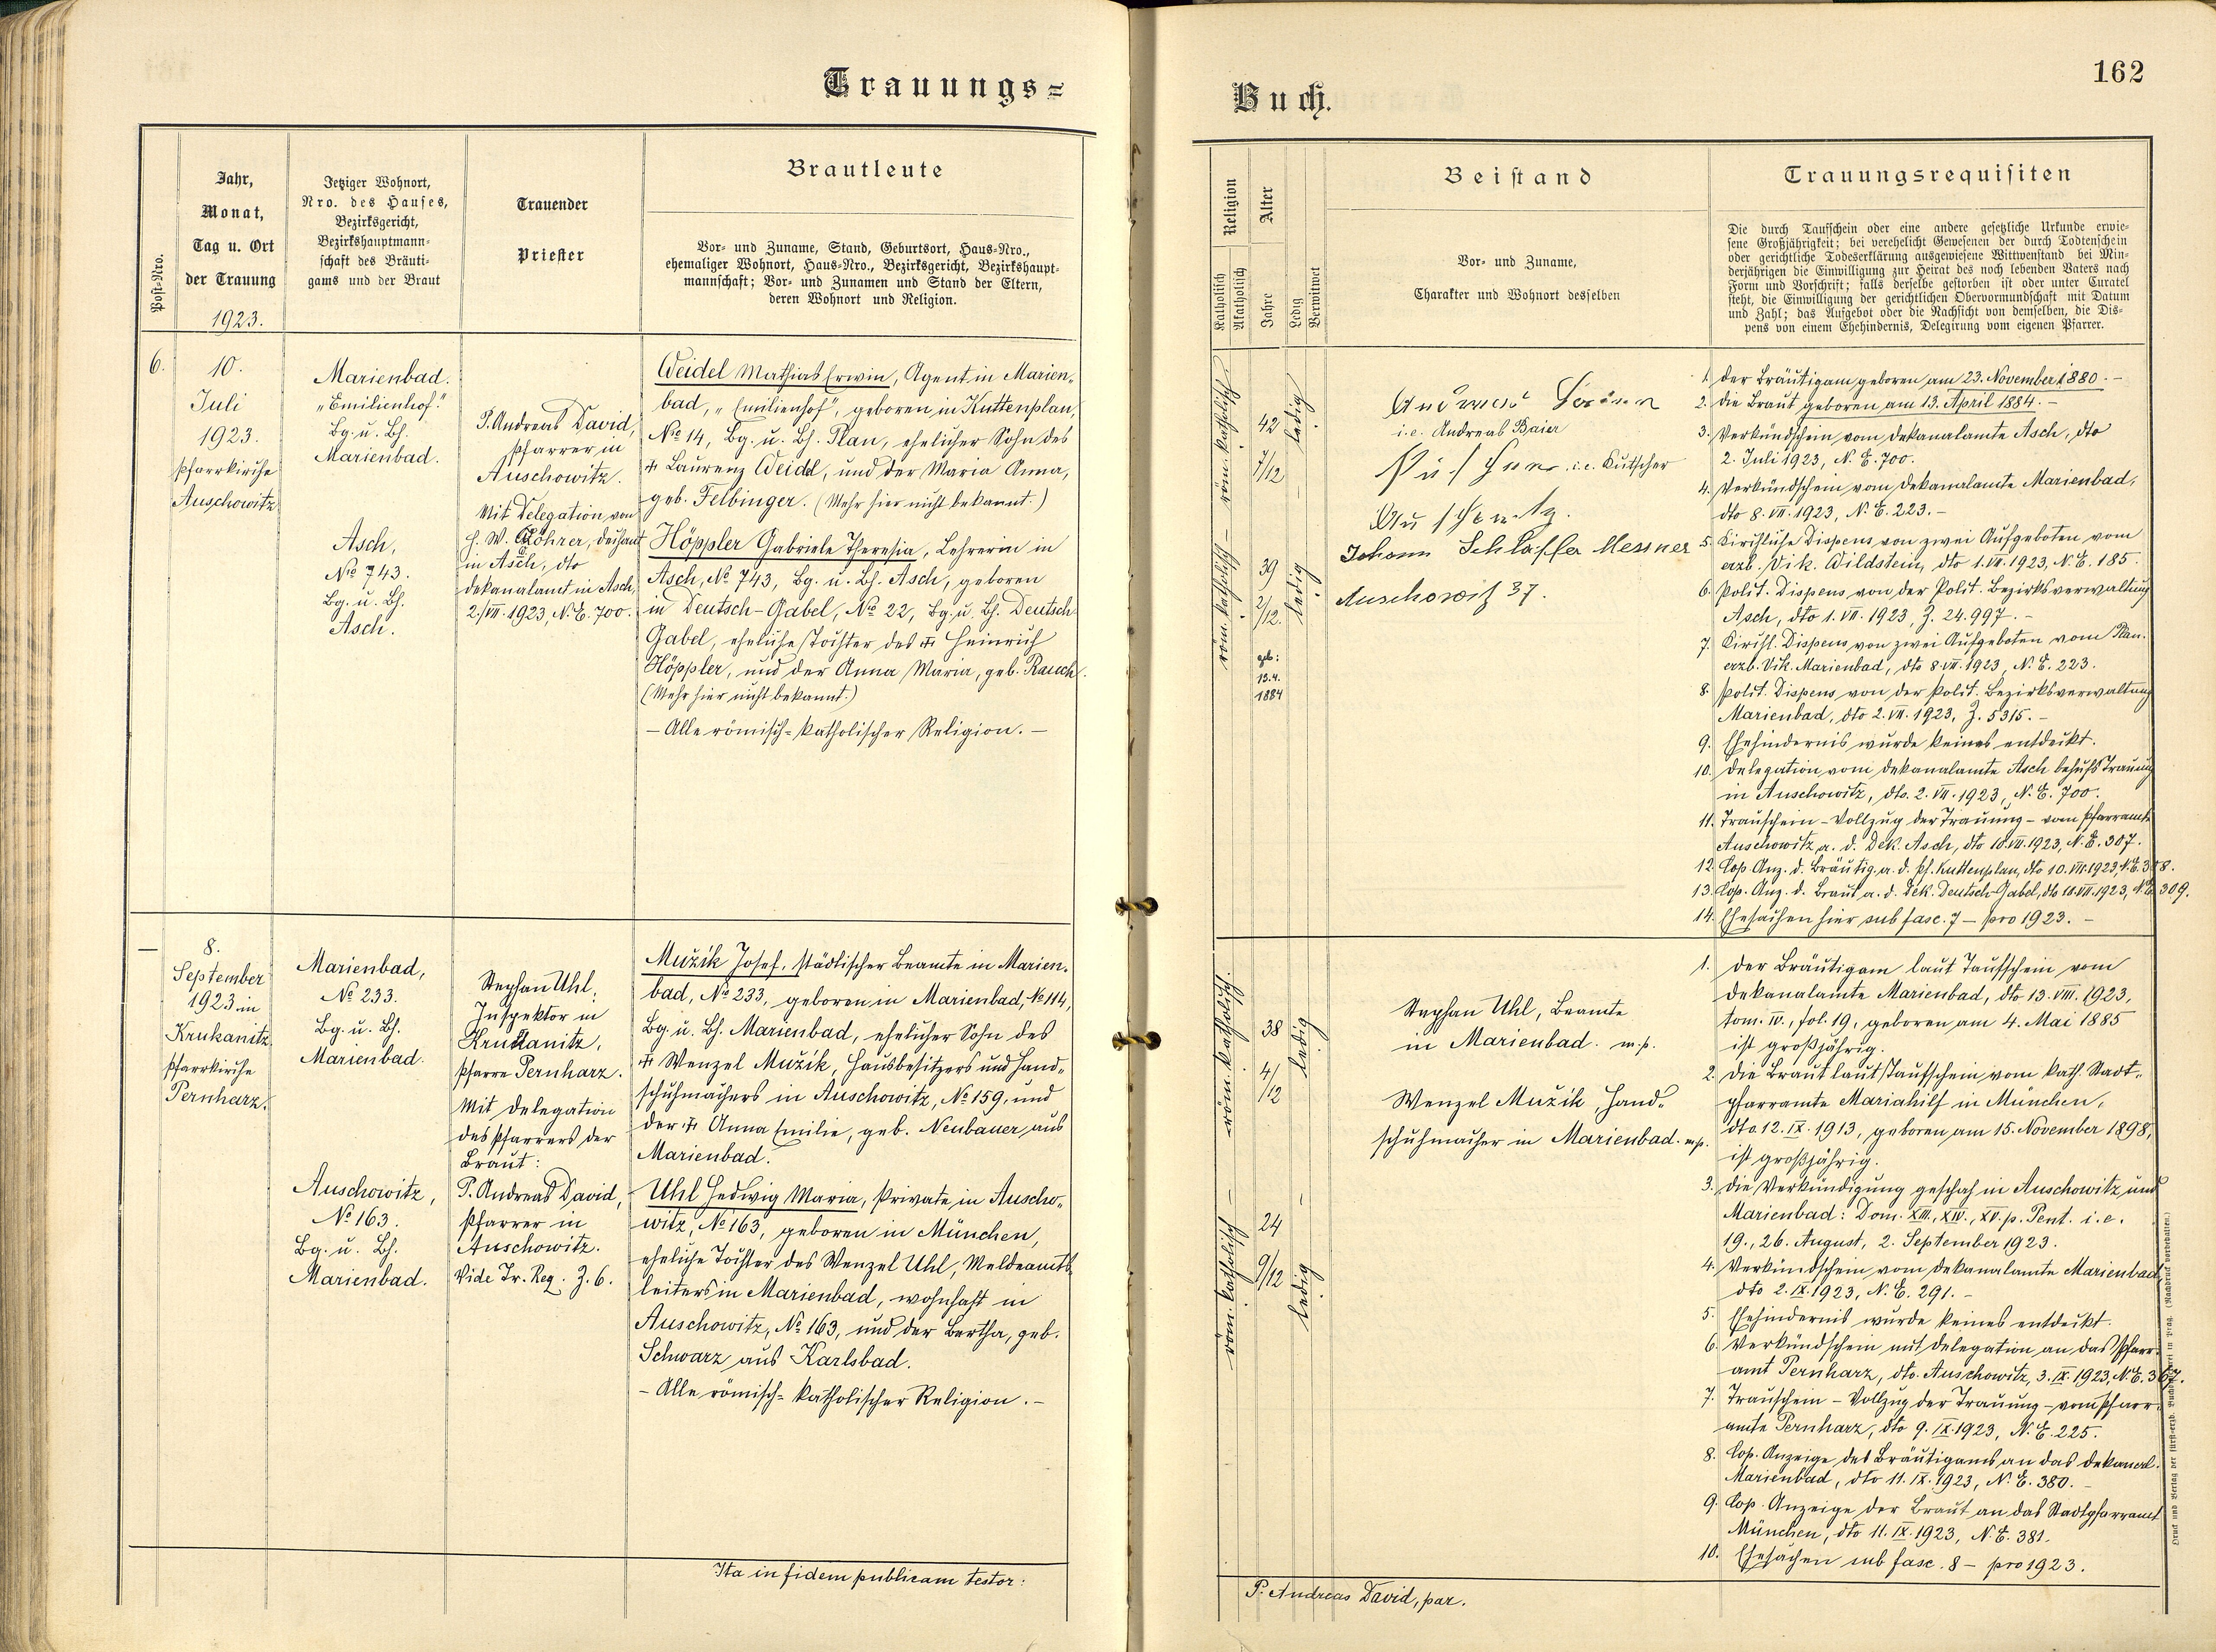 Trauungs=
Jahr,
Monat,
Tag u. Ort
der Trauung
1923.
Post=Nro.
Jetziger Wohnort,
Nro. des Hauses,
Bezirksgericht,
Bezirkshauptmann=
schaft des Bräuti=
gams und der Braut
Trauender
Priester
Brautleute
Vor= und Zuname, Stand, Geburtsort, Haus=Nro.,
ehemaliger Wohnort, Haus=Nro., Bezirksgericht, Bezirkshaupt=
mannschaft; Vor= und Zunamen und Stand der Eltern,
deren Wohnort und Religion.
6.
10.
Juli
1923.
Pfarrkirche
Auschowitz
Marienbad.
„Emilienhof."
Bg. u. Bh.
Marienbad.
Asch,
No 743.
Bg. u. Bh.
Asch.
P. Andreas David,
Pfarrer in
Auschowitz.
Mit Delegation von
H. W. Röhrer, Dechant
in Asch, dto
Dekanalamt in Asch,
2./VII. 1923, N. E. 700.
Weidel Mathias Erwin, Agent in Marien„
bad, „Emilienhof", geboren in Kuttenplan,
No 14, Bg. u. Bh. Plan, ehelicher Sohn des
+ Laurenz Weidel, und der Maria Anna,
geb. Felbinger. (Mehr hier nicht bekannt.)
Höppler Gabriele Theresia, Lehrerin in
Asch, No 743, Bg. u. Bh. Asch, geboren
in Deutsch-Gabel, No 22, Bg. u. Bh. Deutsch
Gabel, eheliche Tochter des + Heinrich
Höppler, und der Anna Maria, geb. Rauch.
(Mehr hier nicht bekannt.)
– Alle römisch=katholischer Religion. –
—
8.
September
1923 in
Krukanitz
Pfarrkirche
Pernharz.
Marienbad,
No 233.
Bg. u. Bh.
Marienbad.
Auschowitz,
No 163.
Bg. u. Bh.
Marienbad.
Stephan Uhl,
Inspektor in
Krukanitz,
Pfarre Pernharz.
Mit Delegation
des Pfarrers der
Braut:
P. Andreas David,
Pfarrer in
Auschowitz.
Vide Tr. Reg. Z. 6.
Mužik Josef, städtischer Beamte in Marien„
bad, No 233, geboren in Marienbad, No 114,
Bg. u. Bh. Marienbad, ehelicher Sohn des
+ Wenzel Mužik, Hausbesitzers und Hand„
schuhmachers in Auschowitz, No 159, und
der + Anna Emilie, geb. Neubauer aus
Marienbad.
Uhl Hedwig Maria, Private in Auscho„
witz, No 163, geboren in München,
eheliche Tochter des Wenzel Uhl, Meldeamts„
leiters in Marienbad, wohnhaft in
Auschowitz, No 163, und der Bertha, geb.
Schwarz aus Karlsbad.
– Alle römisch=katholischer Religion. –
Ita in fidem publicam testor:
Buch.
162
Religion
Katholisch
Akatholisch
Alter
Jahre
Ledig
Verwitwet
Beistand
Vor= und Zuname,
Charakter und Wohnort desselben
Trauungsrequisiten
Die durch Taufschein oder eine andere gesetzliche Urkunde erwie=
sene Großjährigkeit; bei verehelicht Gewesenen der durch Todtenschein
oder gerichtliche Todeserklärung ausgewiesene Wittwenstand bei Min=
derjährigen die Einwilligung zur Heirat des noch lebenden Vaters nach
Form und Vorschrift; falls derselbe gestorben ist oder unter Curatel
steht, die Einwilligung der gerichtlichen Obervormundschaft mit Datum
und Zahl; das Aufgebot oder die Nachsicht von demselben, die Dis=
pens von einem Ehehindernis, Delegirung vom eigenen Pfarrer.
röm. katholisch –
42
7/12
ledig
röm. katholisch
39
2/12.
ledig
geb:
13.4.
1884
i. e. Andreas Baier
i. e. Kutscher
Auschowitz.
Johann Schlaffer Messner
Auschowitz 37.
1. Der Bräutigam geboren am 23. November 1880. –
2. Die Braut geboren am 13. April 1884. –
3. Verkündschein vom Dekanalamte Asch, dto
2. Juli 1923, N. E. 700.
4. Verkündschein vom Dekanalamte Marienbad,
dto 8. VII. 1923, N. E. 223. –
5. Kirchliche Dispens von zwei Aufgeboten vom
erzb. Vik. Wildstein, dto 1. VII. 1923, N. E. 185.
6. Polit. Dispens von der Polit. Bezirksverwaltung
Asch, dto 1. VII. 1923, Z. 24.997. –
7. Kirchl. Dispens von zwei Aufgeboten vom
erzb. Vik. Marienbad, dto 8. VII. 1923, N. E. 223.
8. Polit. Dispens von der Polit. Bezirksverwaltung
Marienbad, dto 2. VII. 1923, Z. 5315. –
9. Ehehindernis wurde keines entdeckt.
10. Delegation vom Dekanalamte Asch behufs Trauung
in Auschowitz, dto. 2. VII. 1923, N. E. 700.
11. Trauschein – Vollzug der Trauung – vom Pfarramte
Auschowitz a. d. Dek. Asch, dto 10. VII. 1923, N. E. 307.
12. Cop. Anz. d. Bräutig. a. d. Pf. Kuttenplan, dto 10. VII. 1923, N. E. 308.
13. Cop. Anz. d. Braut a. d. Dek. Deutsch-Gabel, dto 10. VII. 1923, N. E. 309.
14. Ehesachen hier sub fasc. 7 – pro 1923. –
röm. katholisch.
38
4/12
ledig
röm. katholisch
24
9/12
ledig
Stephan Uhl, Beamte
in Marienbad. m. p.
Wenzel Mužik, Hand„
schuhmacher in Marienbad. m. p.
1. Der Bräutigam laut Taufschein vom
Dekanalamte Marienbad, dto 13. VIII. 1923,
tom. IV., fol. 19, geboren am 4. Mai 1885
ist großjährig.
2. Die Braut laut Taufschein vom kath. Stadt„
pfarramte Mariahilf in München,
dto 12. IX. 1913, geboren am 15. November 1898,
ist großjährig.
3. Die Verkündigung geschah in Auschowitz und
Marienbad: Dom. XIII., XIV., XV. p. Pent. i. e.
19., 26. August, 2. September 1923.
4. Verkündschein vom Dekanalamte Marienbad,
dto 2. IX. 1923, N. E. 291. –
5. Ehehindernis wurde keines entdeckt.
6. Verkündschein mit Delegation an das Pfarr„
amt Pernharz, dto. Auschowitz, 3. IX. 1923, N. E. 367.
7. Trauschein – Vollzug der Trauung – vom Pfarr„
amte Pernharz, dto 9. IX. 1923, N. E. 225.
8. Cop. Anzeige des Bräutigams an das Dekanal.
Marienbad, dto 11. IX. 1923, N. E. 380. –
9. Cop. Anzeige der Braut an das Stadtpfarramt
München, dto 11. IX. 1923, N. E. 381.
10. Ehesachen sub fasc. 8 – pro 1923.
P. Andreas David, par.